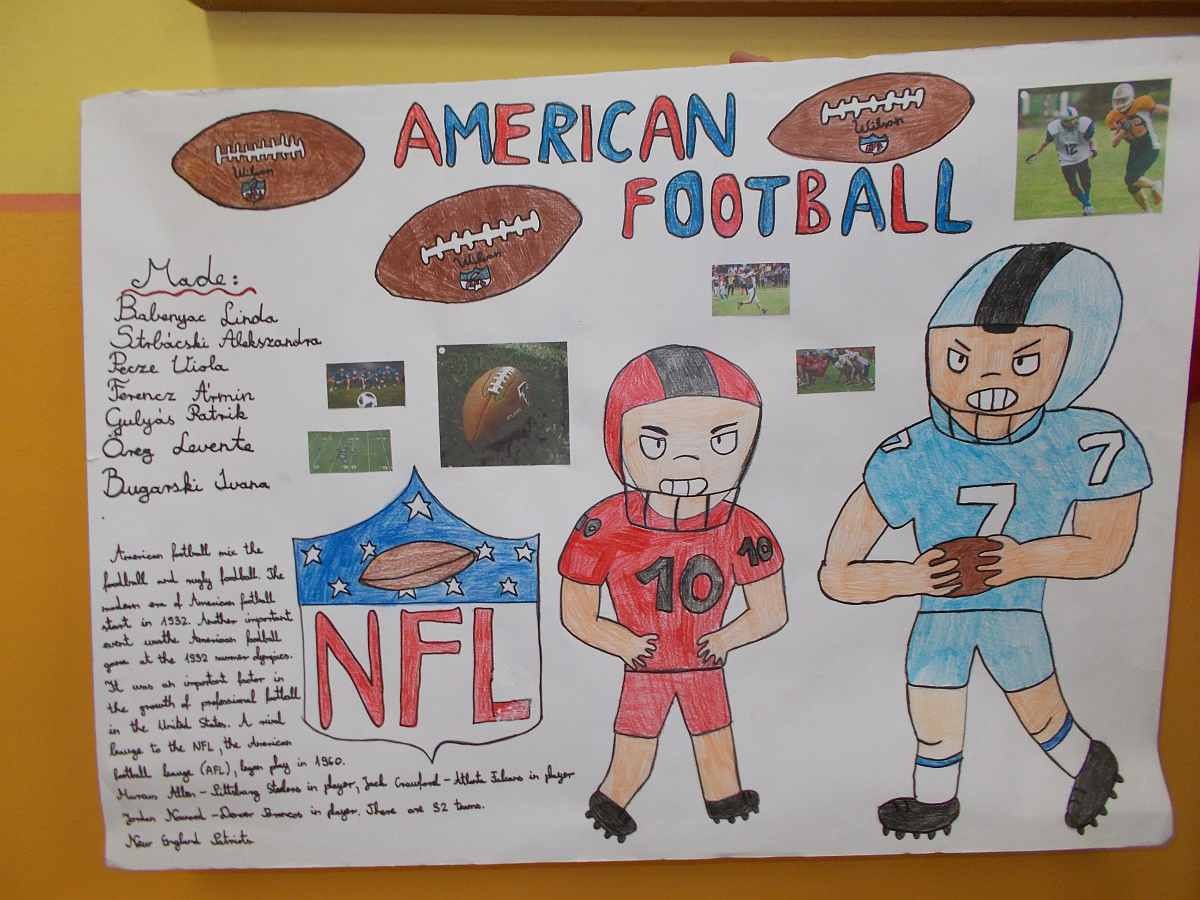 AMERICAN
FOOTBALL
Wilson
Wilson
Wilson
Made:
Babenyac Linda
Strbácski Alekszandra
Pecze Viola
Ferencz Ármin
Gulyás Patrik
Öreg Levente
Bugarski Ivana
American football mix the
football and rugby football. The
modern era of American football
start in 1932. Another important
event was the American football
game at the 1932 summer olympics.
It was an important factor in
the growth of professional football
in the United States. A rival
league to the NFL, the American
football league (AFL), began play in 1960.
Allen - Steelers in player, Jack Crawford - Atlanta Falcons in player
Jordan - Denver Broncos in player. There are 32 teams.
New England Patriots
NFL
10
10
10
7
7
7
12